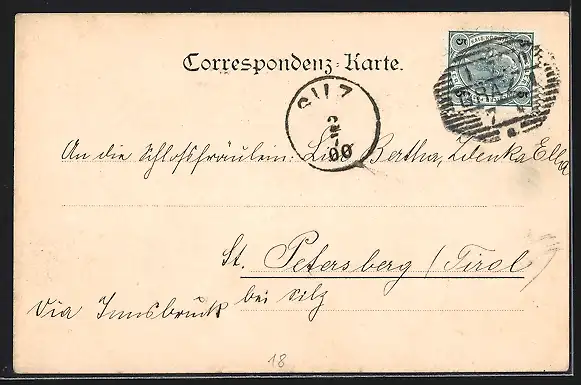 Correspondenz-Karte.
5 5
SILZ
00
An die Schlossfräulein: Bertha, Zdenka Ella
St. Petersberg (Tirol
bei Silz
Via Innsbruck
18